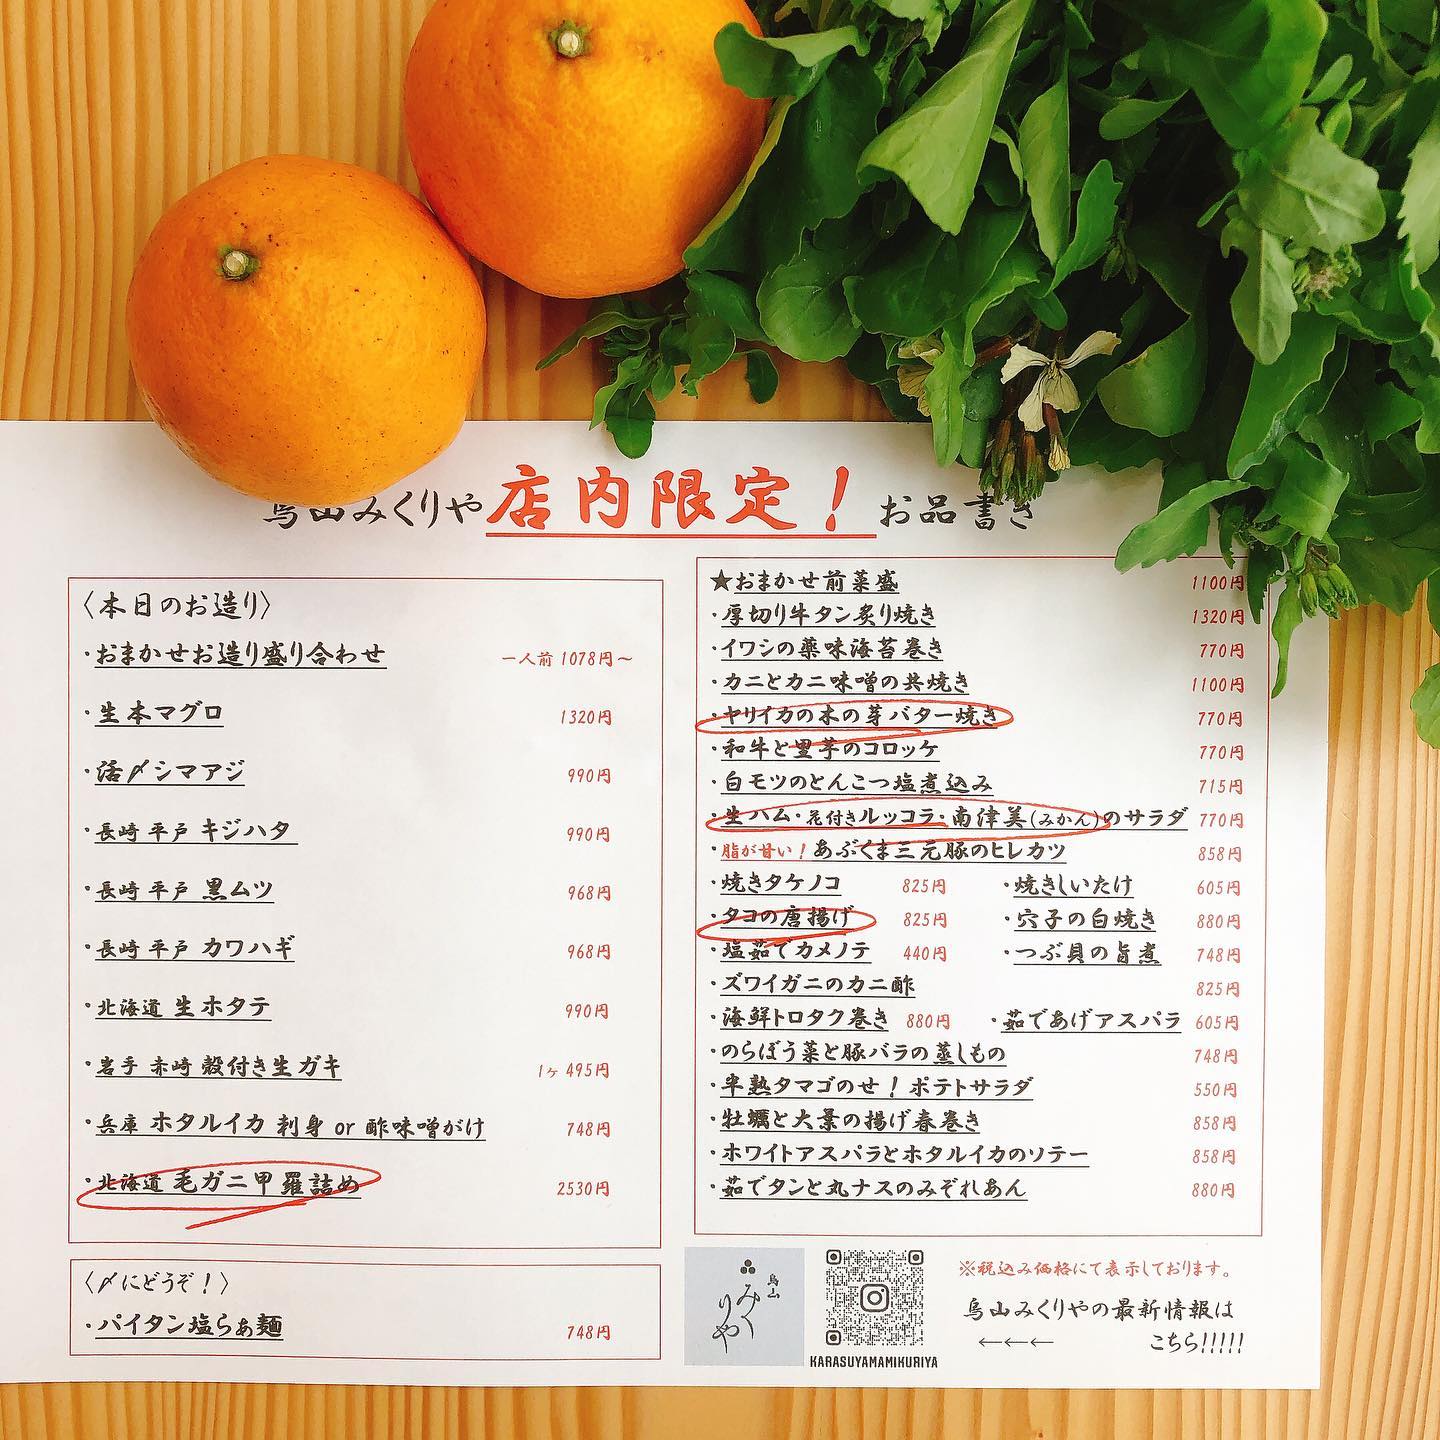 烏山みくりや店内限定！お品書き
〈本日のお造り〉
・おまかせお造り盛り合わせ 一人前 1078円～
・生本マグロ 1320円
・活〆シマアジ 990円
・長崎 平戸 キジハタ 990円
・長崎 平戸 黒ムツ 968円
・長崎 平戸 カワハギ 968円
・北海道 生ホタテ 990円
・岩手 赤崎 殻付き生ガキ 1ヶ 495円
・兵庫 ホタルイカ 刺身 or 酢味噌がけ 748円
・北海道 毛ガニ甲羅詰め 2530円
〈〆にどうぞ！〉
・パイタン塩らぁ麺 748円
★おまかせ前菜盛 1100円
・厚切り牛タン炙り焼き 1320円
・イワシの薬味海苔巻き 770円
・カニとカニ味噌の共焼き 1100円
・ヤリイカの木の芽バター焼き 770円
・和牛と里芋のコロッケ 770円
・白モツのとんこつ塩煮込み 715円
・生ハム・花付きルッコラ・南津美(みかん)のサラダ 770円
・脂が甘い！あぶくま三元豚のヒレカツ 858円
・焼きタケノコ 825円 ・焼きしいたけ 605円
・タコの唐揚げ 825円 ・穴子の白焼き 880円
・塩茹でカメノテ 440円 ・つぶ貝の旨煮 748円
・ズワイガニのカニ酢 825円
・海鮮トロタク巻き 880円 ・茹であげアスパラ 605円
・のらぼう菜と豚バラの蒸しもの 748円
・半熟タマゴのせ！ポテトサラダ 550円
・牡蠣と大葉の揚げ春巻き 858円
・ホワイトアスパラとホタルイカのソテー 858円
・茹でタンと丸ナスのみぞれあん 880円
烏山
みくりや
KARASUYAMAMIKURIYA
※税込み価格にて表示しております。
烏山みくりやの最新情報は
←←← こちら!!!!!